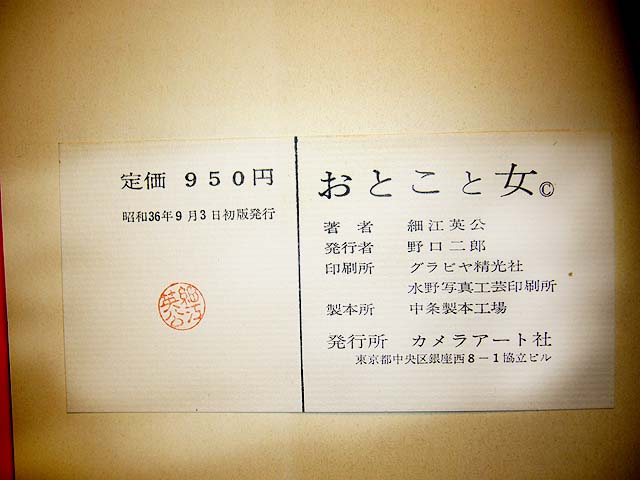 定価 950円
昭和36年9月3日初版発行
細江英公
おとこと女©
著者 細江英公
発行者 野口二郎
印刷所 グラビヤ精光社
水野写真工芸印刷所
製本所 中条製本工場
発行所 カメラアート社
東京都中央区銀座西8-1協立ビル